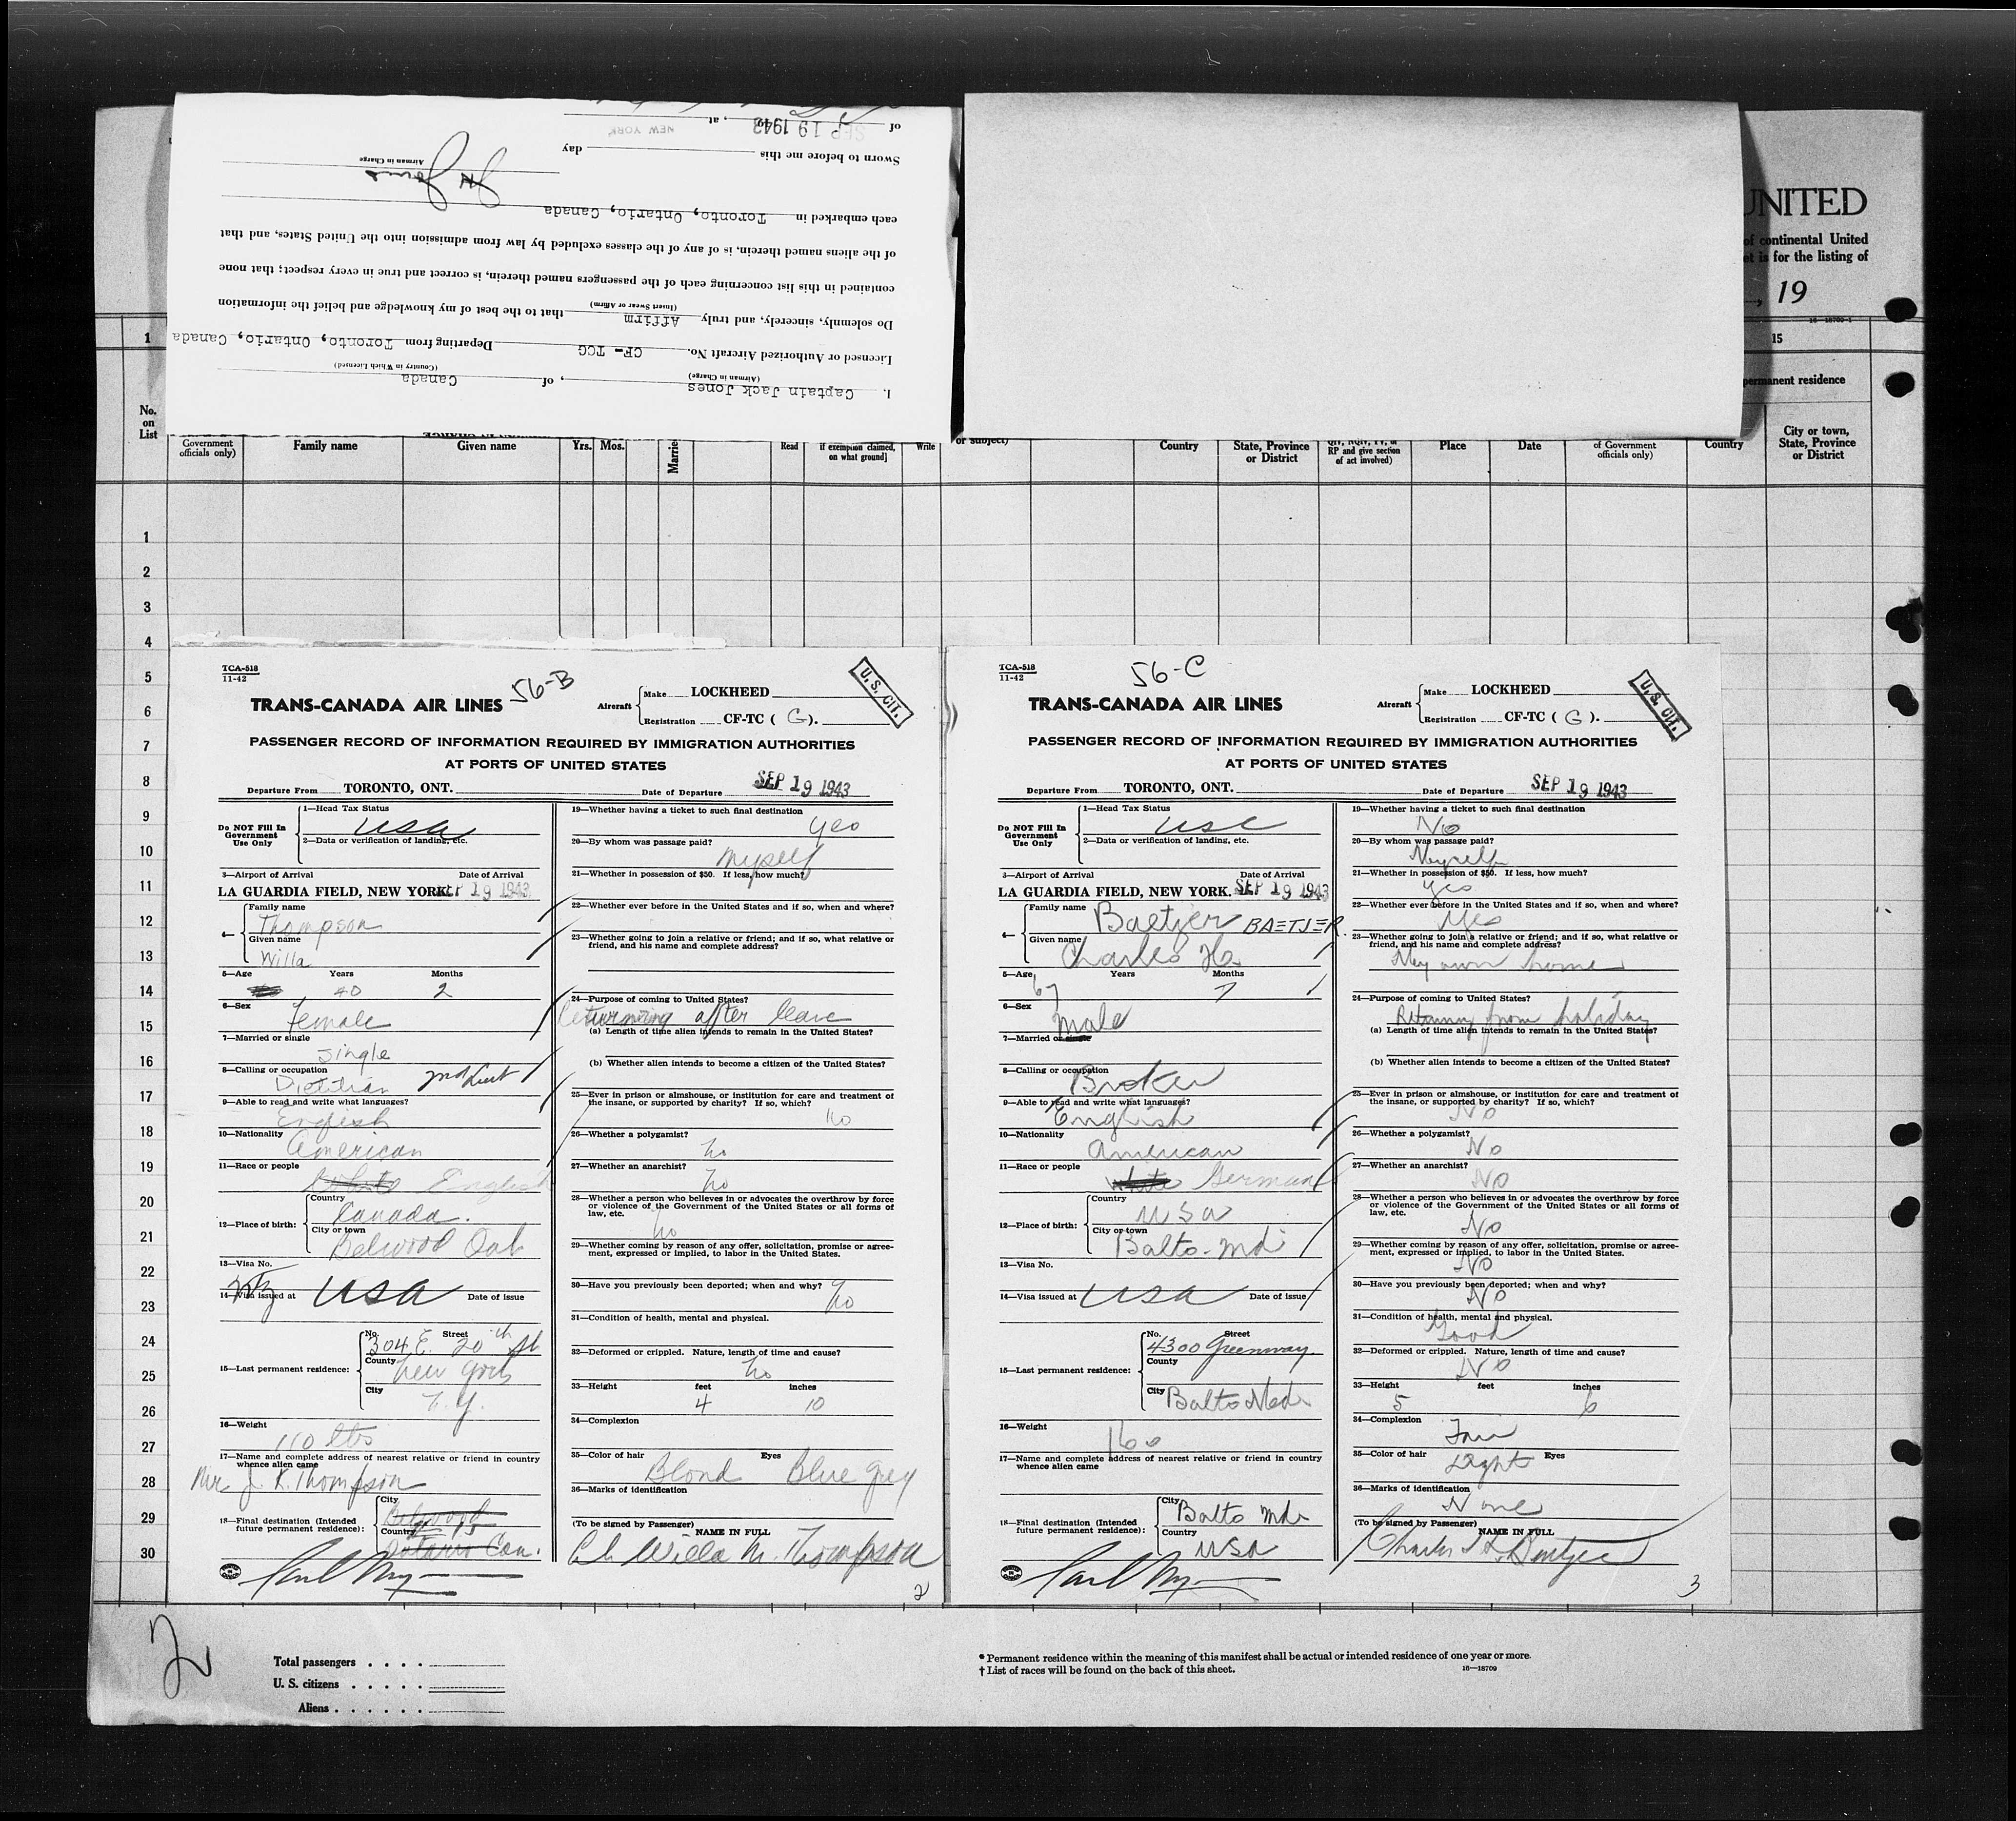 I, Captain Jack Jones, of Canada
(Airman in Charge) (Country in Which Licensed)
Licensed or Authorized Aircraft No. CF-TCG Departing from Toronto, Ontario, Canada
Do solemnly, sincerely, and truly Affirm that to the best of my knowledge and belief the information
(Insert Swear or Affirm)
contained in this list concerning each of the passengers named therein, is correct and true in every respect; that none
of the aliens named therein, is of any of the classes excluded by law from admission into the United States, and that
each embarked in Toronto, Ontario, Canada
Airman in Charge
Sworn to before me this day
of SEP 19 1943, at NEW YORK
UNITED
of continental United
is for the listing of
, 19
16-18709-1
1
15
permanent residence
No. on List
Government officials only)
Family name
Given name
Yrs.
Mos.
Read
if exemption claimed, on what ground]
Write
or subject)
Country
State, Province or District
RP and give section of act involved)
Place
Date
of Government officials only)
Country
City or town, State, Province or District
1
2
3
4
5
6
7
8
9
10
11
12
13
14
15
16
17
18
19
20
21
22
23
24
25
26
27
28
29
30
TCA-518
11-42
56-B
U.S. CIT.
TRANS-CANADA AIR LINES
Aircraft Make LOCKHEED
Registration CF-TC ( G ).
PASSENGER RECORD OF INFORMATION REQUIRED BY IMMIGRATION AUTHORITIES
AT PORTS OF UNITED STATES
Departure From TORONTO, ONT. Date of Departure SEP 19 1943
Do NOT Fill In Government Use Only
1—Head Tax Status
USA
2—Data or verification of landing, etc.
3—Airport of Arrival Date of Arrival
LA GUARDIA FIELD, NEW YORK. SEP 19 1943
4— Family name
Thompson
Given name
Willa
5—Age Years Months
40 2
6—Sex
female
7—Married or single
single
8—Calling or occupation
Dietitian 2nd Lieut
9—Able to read and write what languages?
English
10—Nationality
American
11—Race or people
White English
12—Place of birth: Country
Canada.
City or town
Belwood Ont
13—Visa No.
14—Visa issued at USA Date of issue
15—Last permanent residence: No. Street
304 E. 20th St
County
New York
City
N.Y.
16—Weight
110 lbs
17—Name and complete address of nearest relative or friend in country whence alien came
Mr J. K. Thompson
18—Final destination (Intended future permanent residence): City
Belwood
Country
Ontario Can.
19—Whether having a ticket to such final destination
yes
20—By whom was passage paid?
Myself
21—Whether in possession of $50. If less, how much?
22—Whether ever before in the United States and if so, when and where?
23—Whether going to join a relative or friend; and if so, what relative or friend, and his name and complete address?
24—Purpose of coming to United States?
Returning after leave
(a) Length of time alien intends to remain in the United States?
(b) Whether alien intends to become a citizen of the United States?
25—Ever in prison or almshouse, or institution for care and treatment of the insane, or supported by charity? If so, which?
no
26—Whether a polygamist?
no
27—Whether an anarchist?
no
28—Whether a person who believes in or advocates the overthrow by force or violence of the Government of the United States or all forms of law, etc.
no
29—Whether coming by reason of any offer, solicitation, promise or agreement, expressed or implied, to labor in the United States.
30—Have you previously been deported; when and why?
no
31—Condition of health, mental and physical.
32—Deformed or crippled. Nature, length of time and cause?
no
33—Height feet inches
4 10
34—Complexion
35—Color of hair Eyes
Blond Blue grey
36—Marks of identification
(To be signed by Passenger) NAME IN FULL
Willa M. Thompson
2
TCA-518
11-42
56-C
U.S. CIT.
TRANS-CANADA AIR LINES
Aircraft Make LOCKHEED
Registration CF-TC ( G ).
PASSENGER RECORD OF INFORMATION REQUIRED BY IMMIGRATION AUTHORITIES
AT PORTS OF UNITED STATES
Departure From TORONTO, ONT. Date of Departure SEP 19 1943
Do NOT Fill In Government Use Only
1—Head Tax Status
USC
2—Data or verification of landing, etc.
3—Airport of Arrival Date of Arrival
LA GUARDIA FIELD, NEW YORK. SEP 19 1943
4— Family name
Baetjer BAETJER.
Given name
Charles H.
5—Age Years Months
67 7
6—Sex
Male
7—Married or single
8—Calling or occupation
Broker
9—Able to read and write what languages?
English
10—Nationality
American
11—Race or people
White German
12—Place of birth: Country
USA
City or town
Balto. Md
13—Visa No.
14—Visa issued at USA Date of issue
15—Last permanent residence: No. Street
4300 Greenway.
County
City
Balto Md.
16—Weight
160
17—Name and complete address of nearest relative or friend in country whence alien came
18—Final destination (Intended future permanent residence): City
Balto Md.
Country
USA
19—Whether having a ticket to such final destination
No
20—By whom was passage paid?
Myself
21—Whether in possession of $50. If less, how much?
Yes
22—Whether ever before in the United States and if so, when and where?
Yes
23—Whether going to join a relative or friend; and if so, what relative or friend, and his name and complete address?
My own home
24—Purpose of coming to United States?
Returning from holiday
(a) Length of time alien intends to remain in the United States?
(b) Whether alien intends to become a citizen of the United States?
25—Ever in prison or almshouse, or institution for care and treatment of the insane, or supported by charity? If so, which?
No
26—Whether a polygamist?
No
27—Whether an anarchist?
No
28—Whether a person who believes in or advocates the overthrow by force or violence of the Government of the United States or all forms of law, etc.
No
29—Whether coming by reason of any offer, solicitation, promise or agreement, expressed or implied, to labor in the United States.
No
30—Have you previously been deported; when and why?
No
31—Condition of health, mental and physical.
Good
32—Deformed or crippled. Nature, length of time and cause?
No
33—Height feet inches
5 6
34—Complexion
Fair
35—Color of hair Eyes
Light
36—Marks of identification
None
(To be signed by Passenger) NAME IN FULL
Charles H. Baetjer
3
2
Total passengers . . . .
U. S. citizens . . . . .
Aliens . . . . . .
* Permanent residence within the meaning of this manifest shall be actual or intended residence of one year or more.
† List of races will be found on the back of this sheet. 16—18709